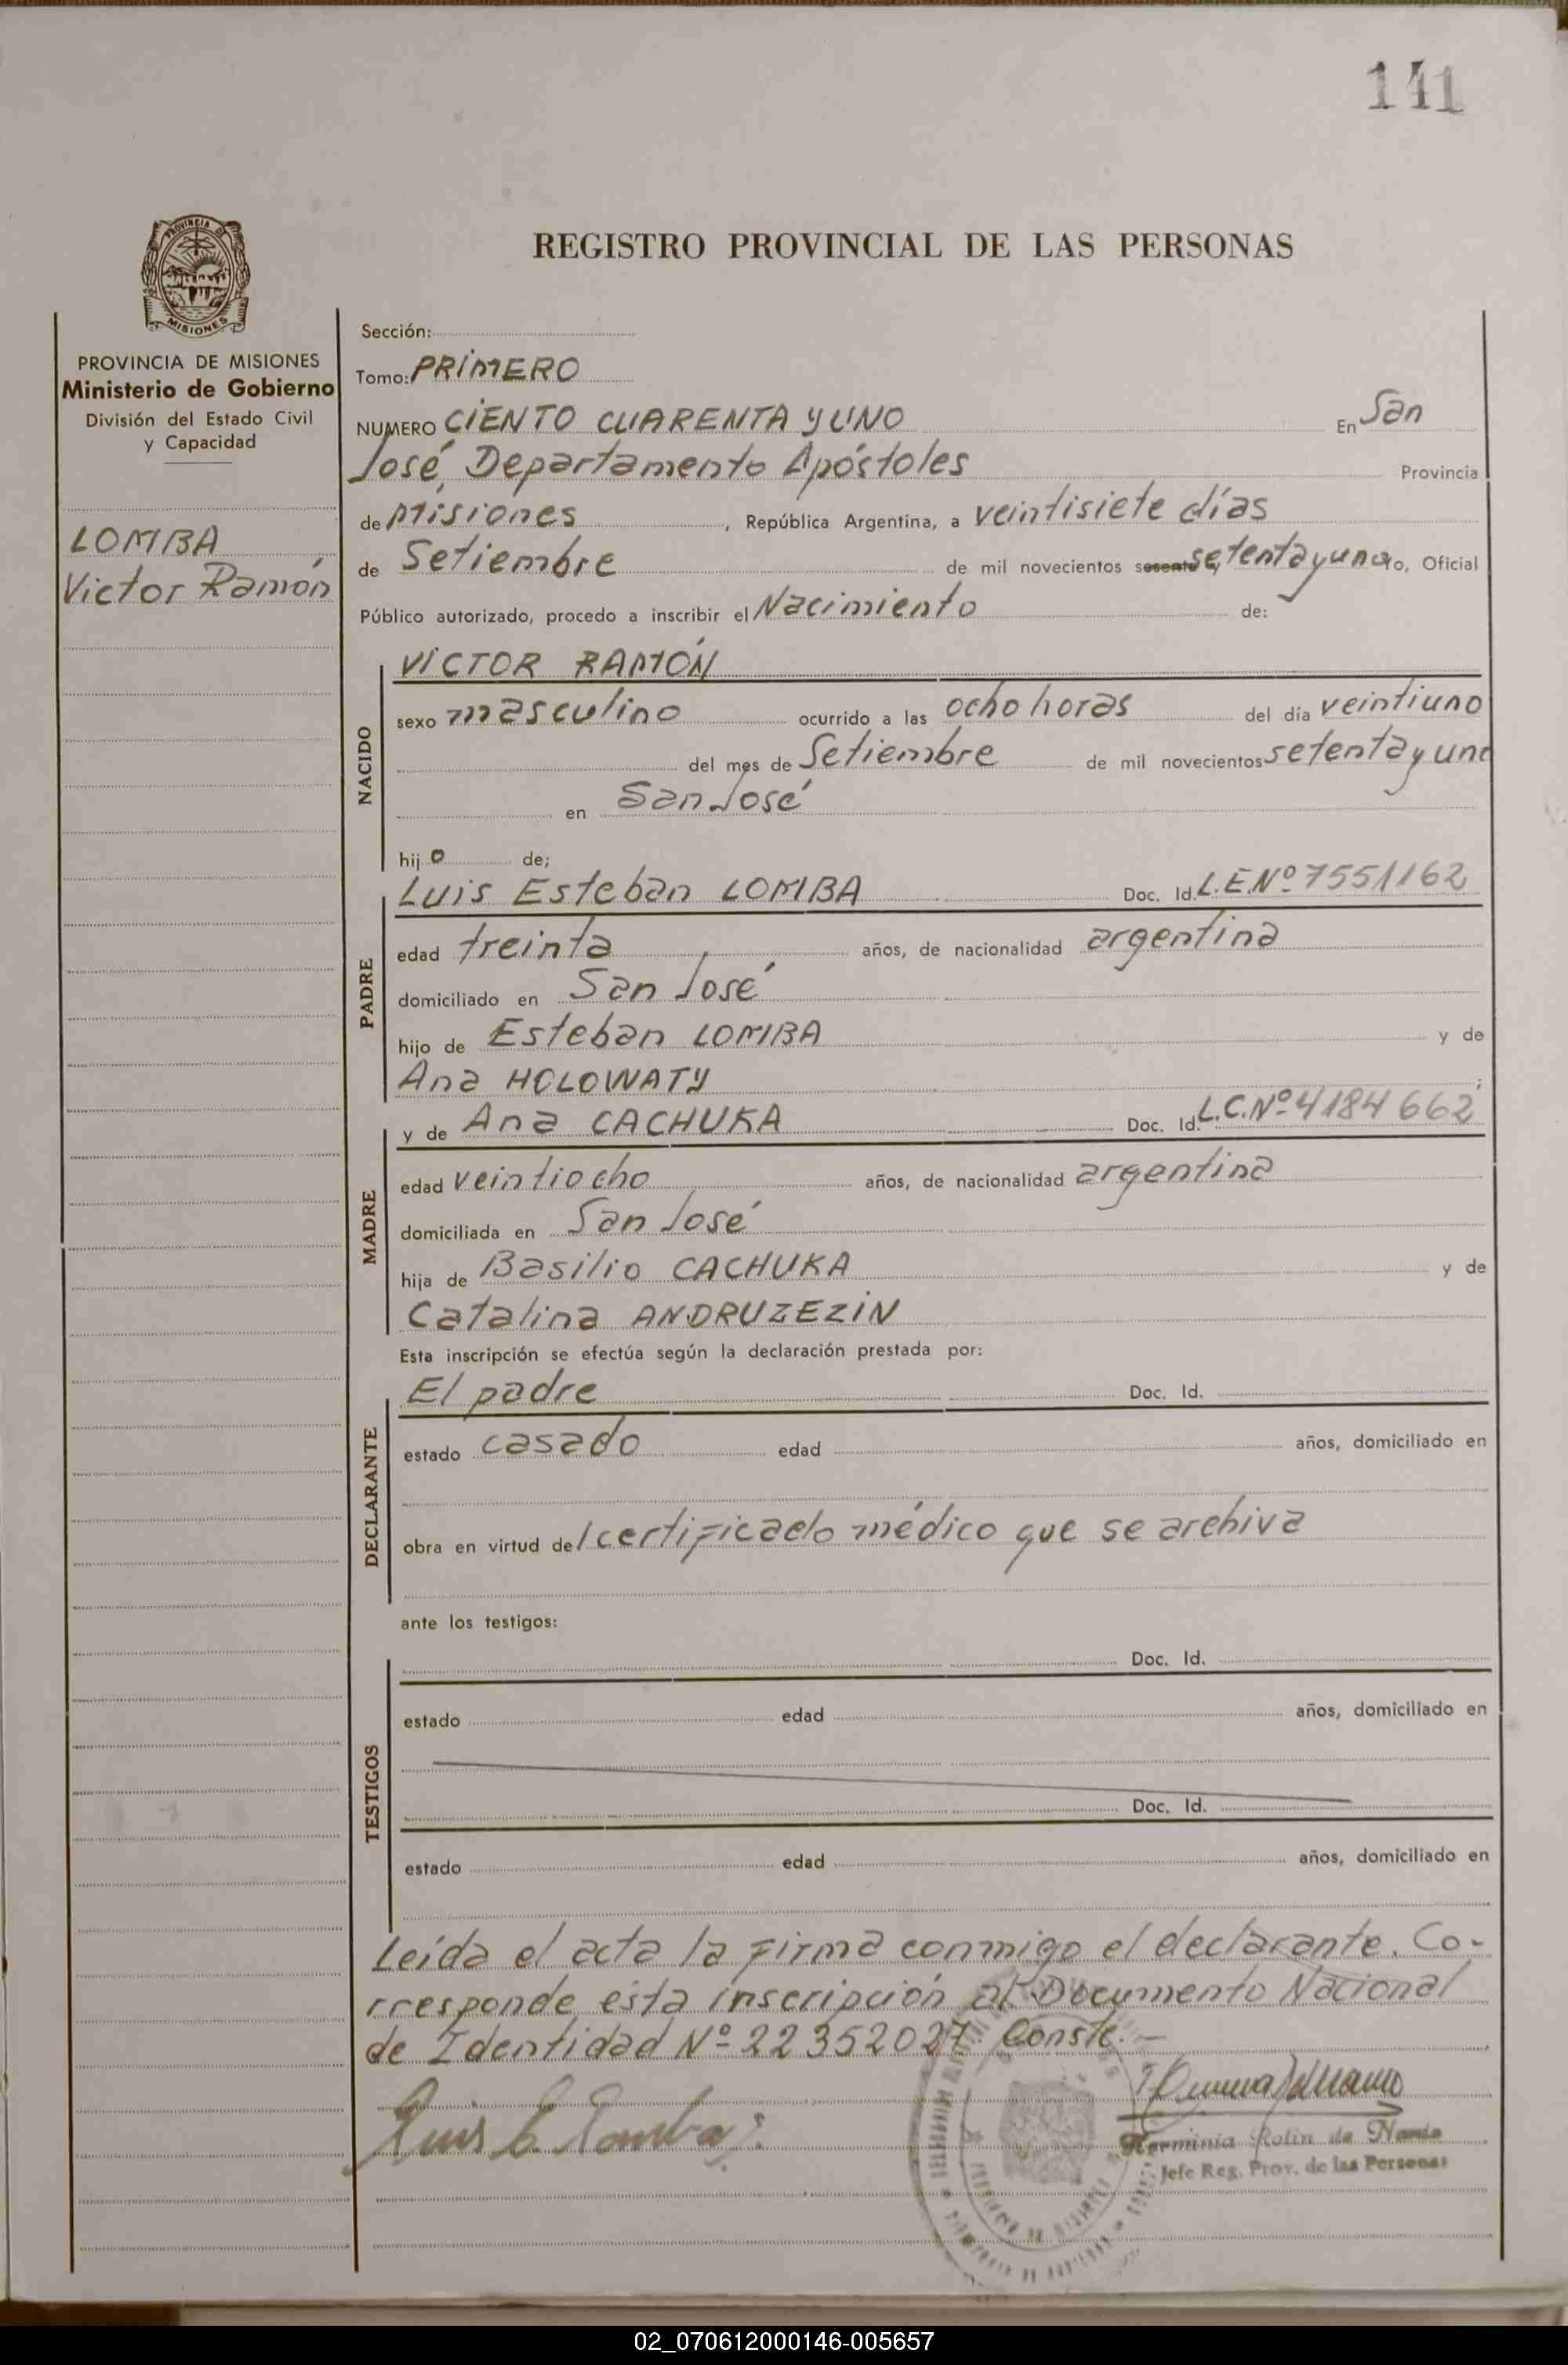 141
REGISTRO PROVINCIAL DE LAS PERSONAS
PROVINCIA DE MISIONES
Ministerio de Gobierno
División del Estado Civil
y Capacidad
LOMBA
Victor Ramón
Sección:
Tomo: PRIMERO
NUMERO CIENTO CUARENTA y UNO En San
José, Departamento Apóstoles Provincia
de Misiones, República Argentina, a veintisiete días
de Setiembre de mil novecientos sesenta, setenta y uno yo, Oficial
Público autorizado, procedo a inscribir el Nacimiento de:
NACIDO
VICTOR RAMÓN
sexo masculino ocurrido a las ocho horas del día veintiuno
del mes de Setiembre de mil novecientos setenta y uno
en San José
hijo de;
PADRE
Luis Esteban LOMBA Doc. Id. L.E.Nº 7551162
edad treinta años, de nacionalidad argentina
domiciliado en San José
hijo de Esteban LOMBA y de
Ana HOLOWATY;
MADRE
y de Ana CACHUKA Doc. Id. L.C.Nº 4184662
edad veintiocho años, de nacionalidad argentina
domiciliada en San José
hija de Basilio CACHUKA y de
Catalina ANDRUZEZIN
Esta inscripción se efectúa según la declaración prestada por:
DECLARANTE
El padre Doc. Id.
estado casado edad años, domiciliado en
obra en virtud del certificado médico que se archiva
ante los testigos:
TESTIGOS
Doc. Id.
estado edad años, domiciliado en
Doc. Id.
estado edad años, domiciliado en
Leída el acta la firma conmigo el declarante. Co-
rresponde ésta inscripción al Documento Nacional
de Identidad Nº 22352027. Conste.-
Luis E Lomba
Herminia Rolin de Nardo
Jefe Reg. Prov. de las Personas
02_070612000146-005657